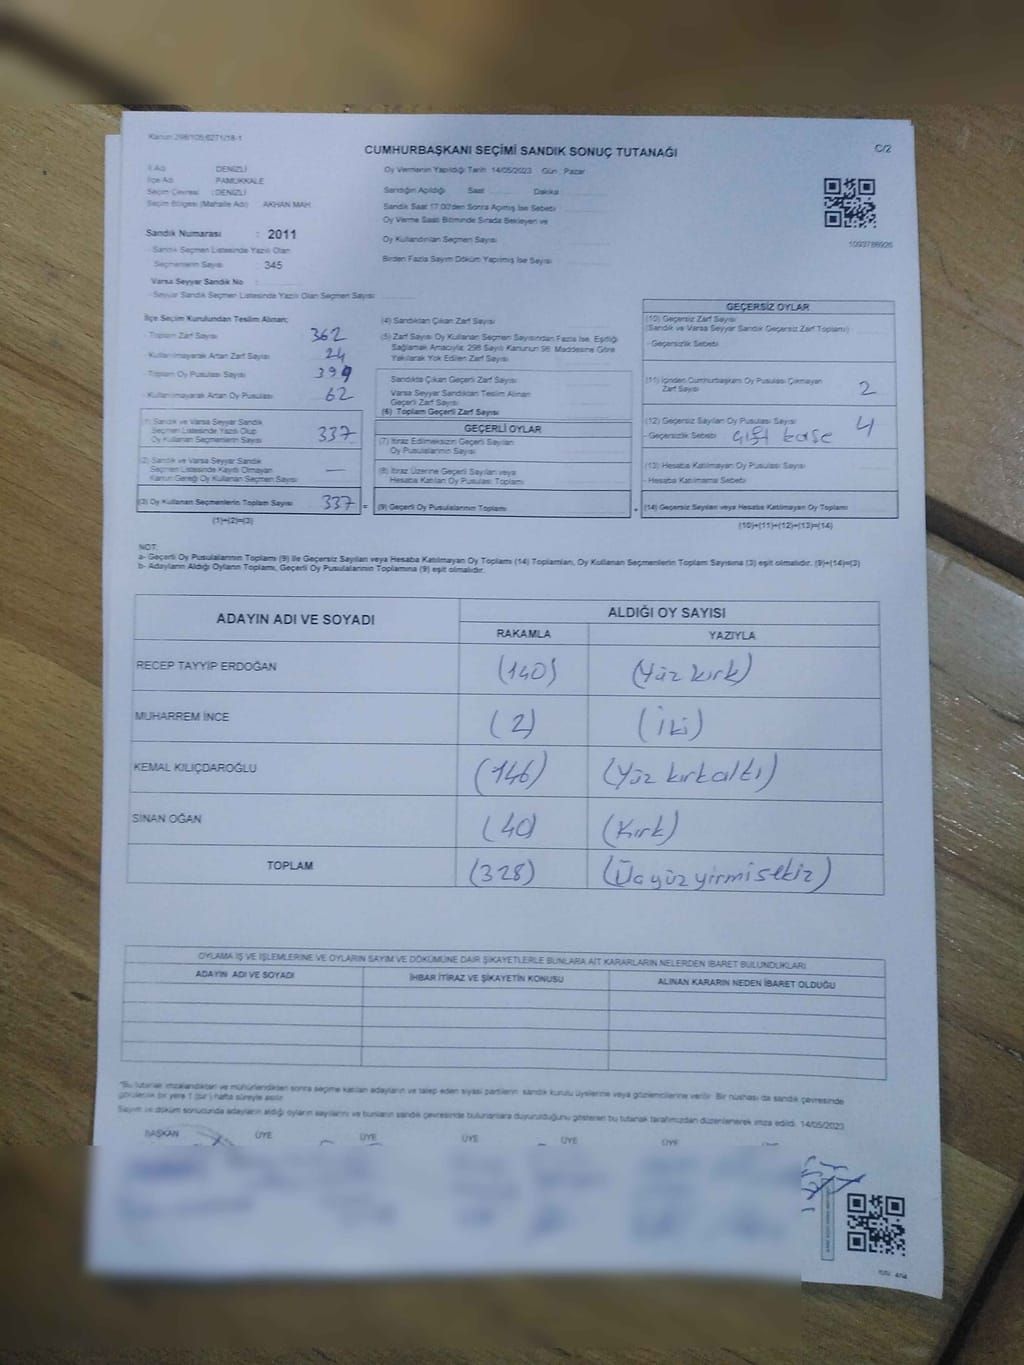 Kanun 298/105;6271/18-1
CUMHURBAŞKANI SEÇİMİ SANDIK SONUÇ TUTANAĞI
C/2
İl Adı : DENİZLİ
İlçe Adı : PAMUKKALE
Seçim Çevresi : DENİZLİ
Seçim Bölgesi (Mahalle Adı) : AKHAN MAH.
Sandık Numarası : 2011
- Sandık Seçmen Listesinde Yazılı Olan
Seçmenlerin Sayısı : 345
Varsa Seyyar Sandık No :
- Seyyar Sandık Seçmen Listesinde Yazılı Olan Seçmen Sayısı :
Oy Vermenin Yapıldığı Tarih : 14/05/2023 Gün : Pazar
Sandığın Açıldığı Saat Dakika
Sandık Saat 17.00'den Sonra Açılmış İse Sebebi :
Oy Verme Saati Bitiminde Sırada Bekleyen ve
Oy Kullandırılan Seçmen Sayısı
Birden Fazla Sayım Döküm Yapılmış İse Sayısı :
1093786926
İlçe Seçim Kurulundan Teslim Alınan;
- Toplam Zarf Sayısı 362
- Kullanılmayarak Artan Zarf Sayısı 24
- Toplam Oy Pusulası Sayısı 399
- Kullanılmayarak Artan Oy Pusulası 62
(1) Sandık ve Varsa Seyyar Sandık
Seçmen Listesinde Yazılı Olup
Oy Kullanan Seçmenlerin Sayısı 337
(2) Sandık ve Varsa Seyyar Sandık
Seçmen Listesinde Kaydı Olmayan
Kanun Gereği Oy Kullanan Seçmen Sayısı —
(3) Oy Kullanan Seçmenlerin Toplam Sayısı 337 =
(1)+(2)=(3)
(4) Sandıktan Çıkan Zarf Sayısı
(5) Zarf Sayısı Oy Kullanan Seçmen Sayısından Fazla İse, Eşitliği
Sağlamak Amacıyla, 298 Sayılı Kanunun 98. Maddesine Göre
Yakılarak Yok Edilen Zarf Sayısı
Sandıkta Çıkan Geçerli Zarf Sayısı
Varsa Seyyar Sandıktan Teslim Alınan
Geçerli Zarf Sayısı
(6) Toplam Geçerli Zarf Sayısı
GEÇERLİ OYLAR
(7) İtiraz Edilmeksizin Geçerli Sayılan
Oy Pusulalarının Sayısı
(8) İtiraz Üzerine Geçerli Sayılan veya
Hesaba Katılan Oy Pusulası Toplamı
(9) Geçerli Oy Pusulalarının Toplamı +
GEÇERSİZ OYLAR
(10) Geçersiz Zarf Sayısı
(Sandık ve Varsa Seyyar Sandık Geçersiz Zarf Toplamı)
- Geçersizlik Sebebi
(11) İçinden Cumhurbaşkanı Oy Pusulası Çıkmayan
Zarf Sayısı 2
(12) Geçersiz Sayılan Oy Pusulası Sayısı 4
- Geçersizlik Sebebi çift kaşe
(13) Hesaba Katılmayan Oy Pusulası Sayısı
- Hesaba Katılmama Sebebi
(14) Geçersiz Sayılan veya Hesaba Katılmayan Oy Toplamı
(10)+(11)+(12)+(13)=(14)
NOT:
a- Geçerli Oy Pusulalarının Toplamı (9) ile Geçersiz Sayılan veya Hesaba Katılmayan Oy Toplamı (14) Toplamları, Oy Kullanan Seçmenlerin Toplam Sayısına (3) eşit olmalıdır. (9)+(14)=(3)
b- Adayların Aldığı Oyların Toplamı, Geçerli Oy Pusulalarının Toplamına (9) eşit olmalıdır.
ADAYIN ADI VE SOYADI
ALDIĞI OY SAYISI
RAKAMLA YAZIYLA
RECEP TAYYİP ERDOĞAN (140) (Yüz kırk)
MUHARREM İNCE (2) (İki)
KEMAL KILIÇDAROĞLU (146) (Yüz kırkaltı)
SİNAN OĞAN (40) (Kırk)
TOPLAM (328) (Üçyüzyirmisekiz)
OYLAMA İŞ VE İŞLEMLERİNE VE OYLARIN SAYIM VE DÖKÜMÜNE DAİR ŞİKAYETLERLE BUNLARA AİT KARARLARIN NELERDEN İBARET BULUNDUKLARI
ADAYIN ADI VE SOYADI İHBAR İTİRAZ VE ŞİKAYETİN KONUSU ALINAN KARARIN NEDEN İBARET OLDUĞU
*Bu tutanak imzalandıktan ve mühürlendikten sonra seçime katılan adayların ve talep eden siyasi partilerin sandık kurulu üyelerine veya gözlemcilerine verilir. Bir nüshası da sandık çevresinde
görülecek bir yere 1 (bir) hafta süreyle asılır.
Sayım ve döküm sonucunda adayların aldığı oyların sayılarını ve bunların sandık çevresinde bulunanlara duyurulduğunu gösteren bu tutanak tarafımızdan düzenlenerek imza edildi. 14/05/2023
BAŞKAN ÜYE ÜYE ÜYE ÜYE ÜYE